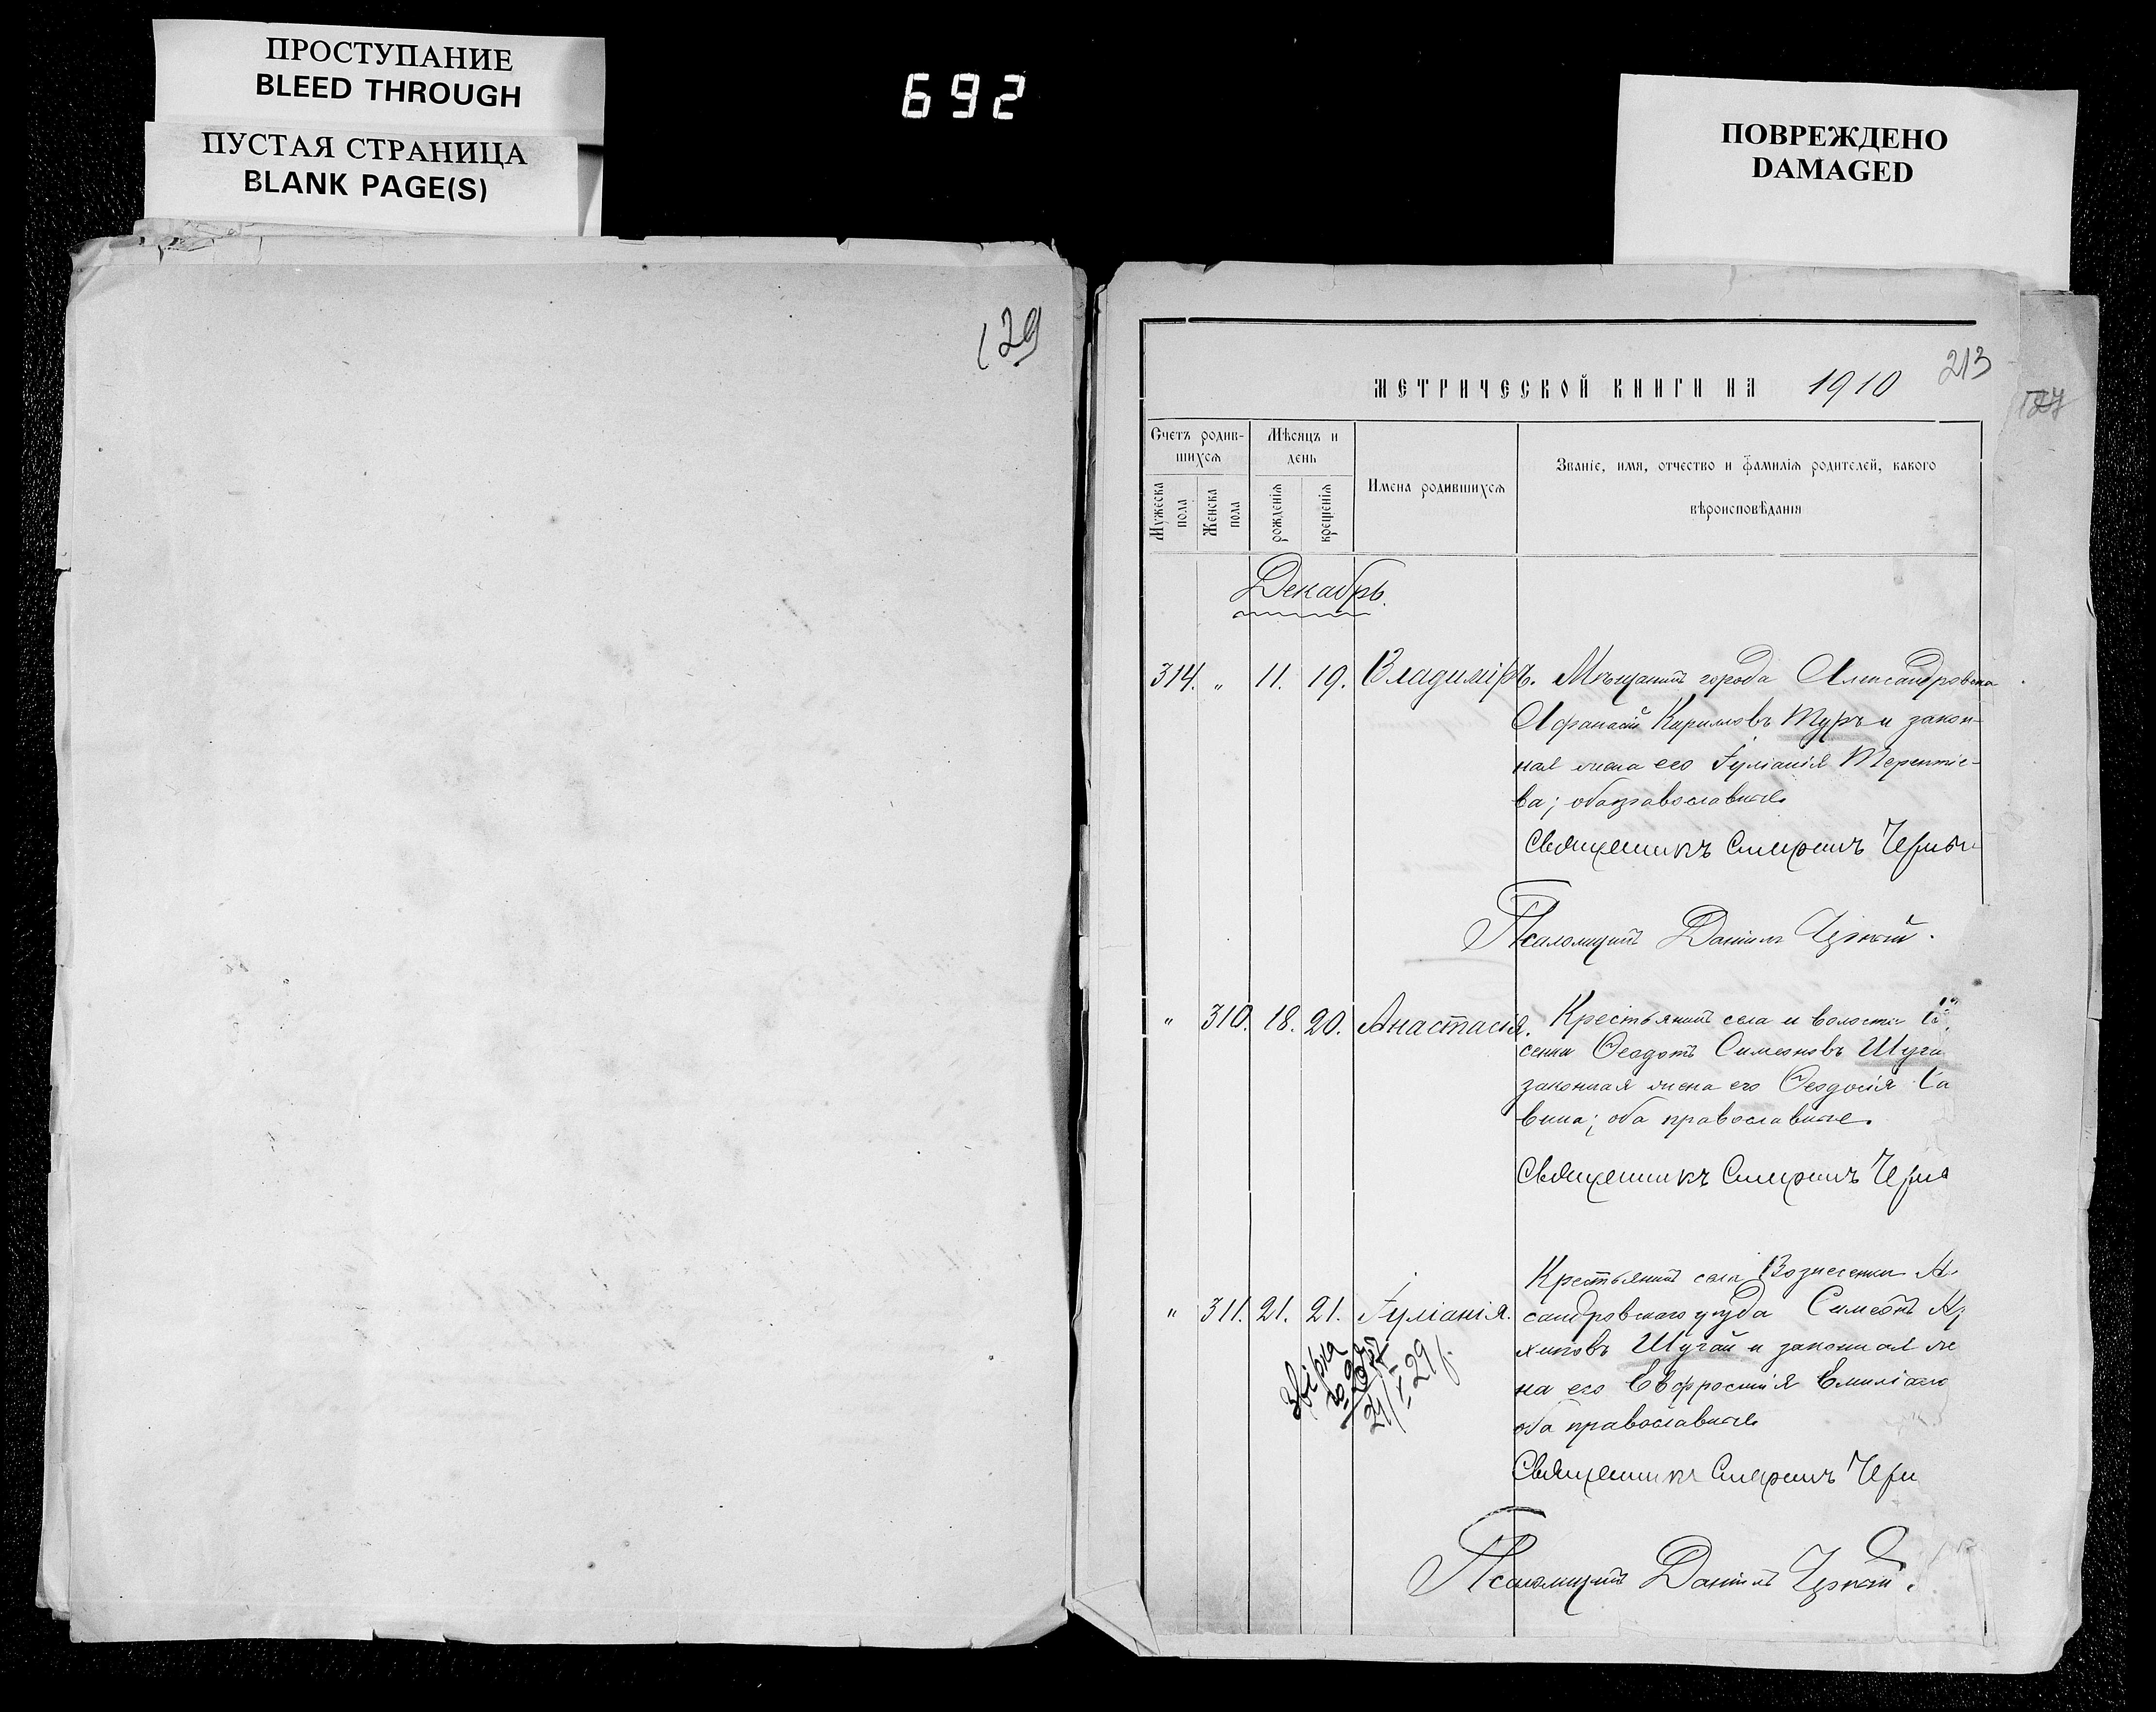 ПРОСТУПАНИЕ
BLEED THROUGH
ПУСТАЯ СТРАНИЦА
BLANK PAGE(S)
692
ПОВРЕЖДЕНО
DAMAGED
129
213
МЕТРИЧЕСКОЙ КНИГИ НА 1910
Счетъ родив-
шихся
Мѣсяцъ и
день
Мужеска
пола
Женска
пола
рожденія
крещенія
Имена родившихся
Званіе, имя, отчество и фамилія родителей, какого
вѣроисповѣданія
Декабрь.
314. „ 11. 19. Владиміръ. Мѣщанинъ города Александровска
Афанасій Кирилловъ Туръ и закон-
ная жена его Іуліанія Терентіе-
ва; оба православные
Священникъ Симеонъ
Псаломщикъ Даніилъ
„ 310. 18. 20. Анастасія. Крестьянинъ села и волости
сенки Ѳеодотъ Симеоновъ Шуга
законная жена его Ѳеодосія Са
вина; оба православные.
Священникъ Симеонъ
Крестьянинъ села Вознесенки А
„ 311. 21. 21. Іуліанія. сандровского уѣзда Симеонъ
хиповъ Шугай и законная же
на его Евфросинія Емиліано
оба православные
Священникъ Симеонъ
Псаломщикъ Даніилъ